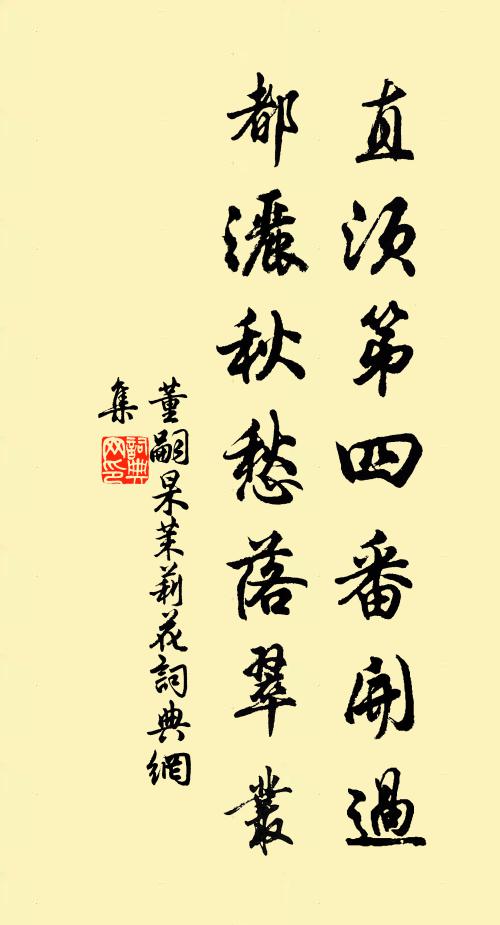 直須第四番開過
都灑秋愁落翠叢
董嗣杲茉莉花詞典網
集
詞典
网印